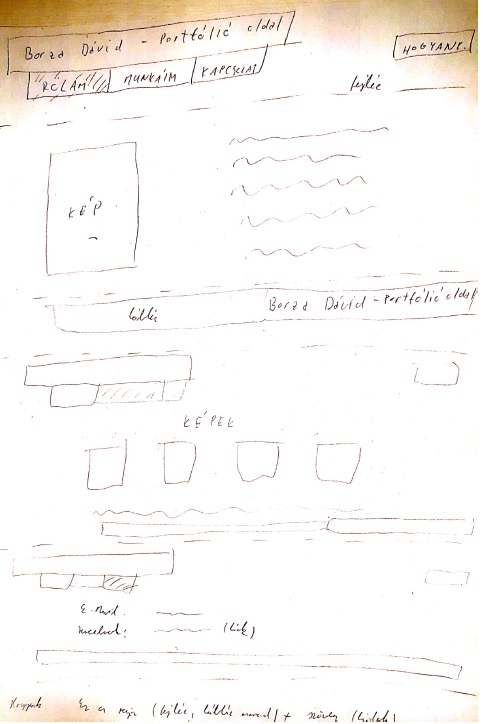 Borza Dávid - Portfólió oldal
HOGYAN?
RÓLAM MUNKÁIM KAPCSOLAT
fejléc
KÉP
lábléc Borza Dávid - Portfólió oldal
KÉPEK
E-mail:
Facebook: (link)
Ez a rajz (fejléc, lábléc